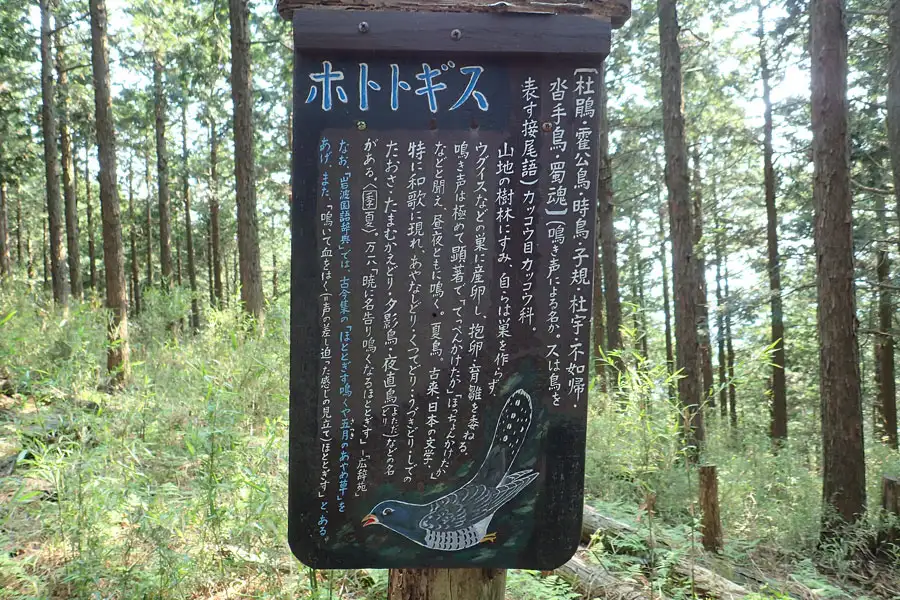 ホトトギス
【杜鵑・霍公鳥・時鳥・子規・杜宇・不如帰・
沓手鳥・蜀魂】鳴き声による名か。スは鳥を
表す接尾語)カッコウ目カッコウ科。
山地の樹林にすみ、自らは巣を作らず、
ウグイスなどの巣に産卵し、抱卵・育雛を委ねる。
鳴き声は極めて顕著で、「てっぺんかけたか」「ほっちょんかけたか」
などと聞え、昼夜ともに鳴く。夏鳥。古来、日本の文学、
特に和歌に現れ、あやなしどり・くつてどり・うづきどり・しでの
たおさ・たまむかえどり・夕影鳥・夜直鳥(よただどり)などの名
がある。〈季夏〉万一八「暁に名告り鳴くなるほととぎす」―「広辞苑」
なお、「岩波国語辞典」では、古今集の「ほととぎす鳴くや五月(さつき)のあやめ草」を
あげ、また、「鳴いて血をはく(=声の差し迫った感じの見立て)ほととぎす」と、ある。